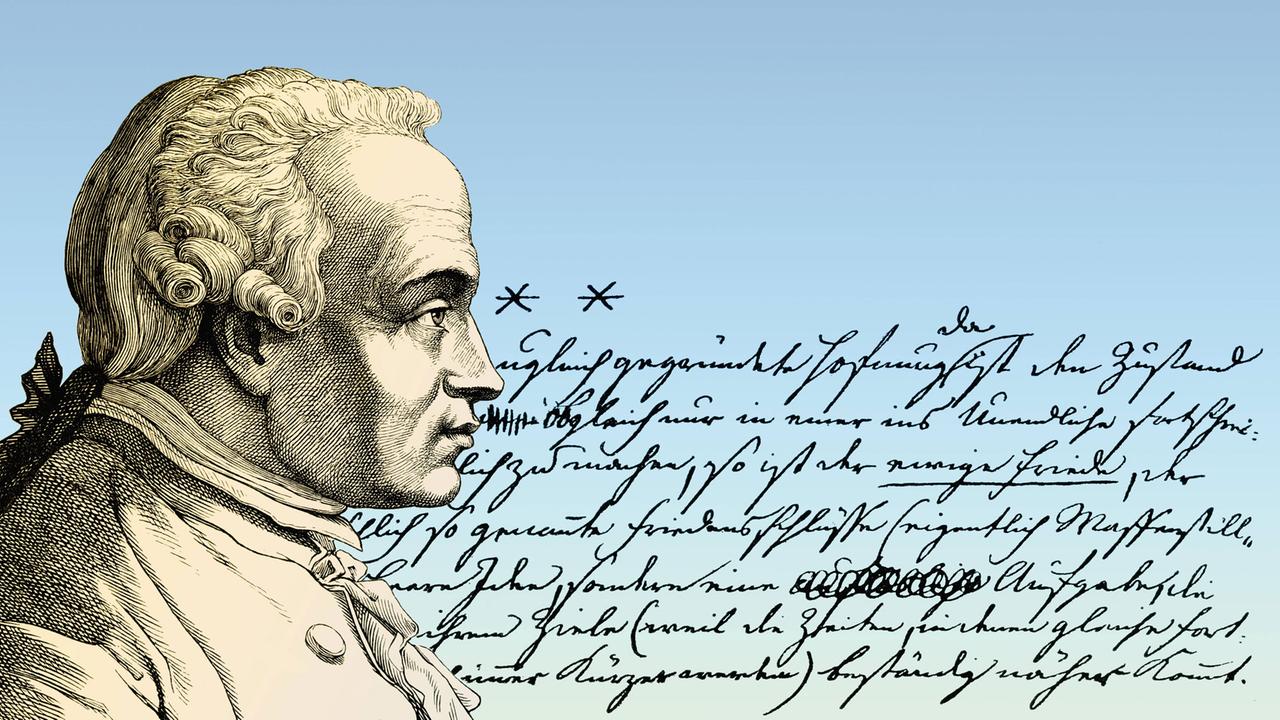 * *
ugleich gegründete Hofnung da ist den Zustand
obgleich nur in einer ins Unendliche fortschrei-
lich zu machen, so ist der ewige Friede, der
schlich so genante Friedensschlüsse (eigentlich Waffenstill-
leere Idee, sondern eine Aufgabe, die
ihrem Ziele (weil die Zeiten, in denen gleiche Fort-
immer kürzer werden) beständig näher komt.